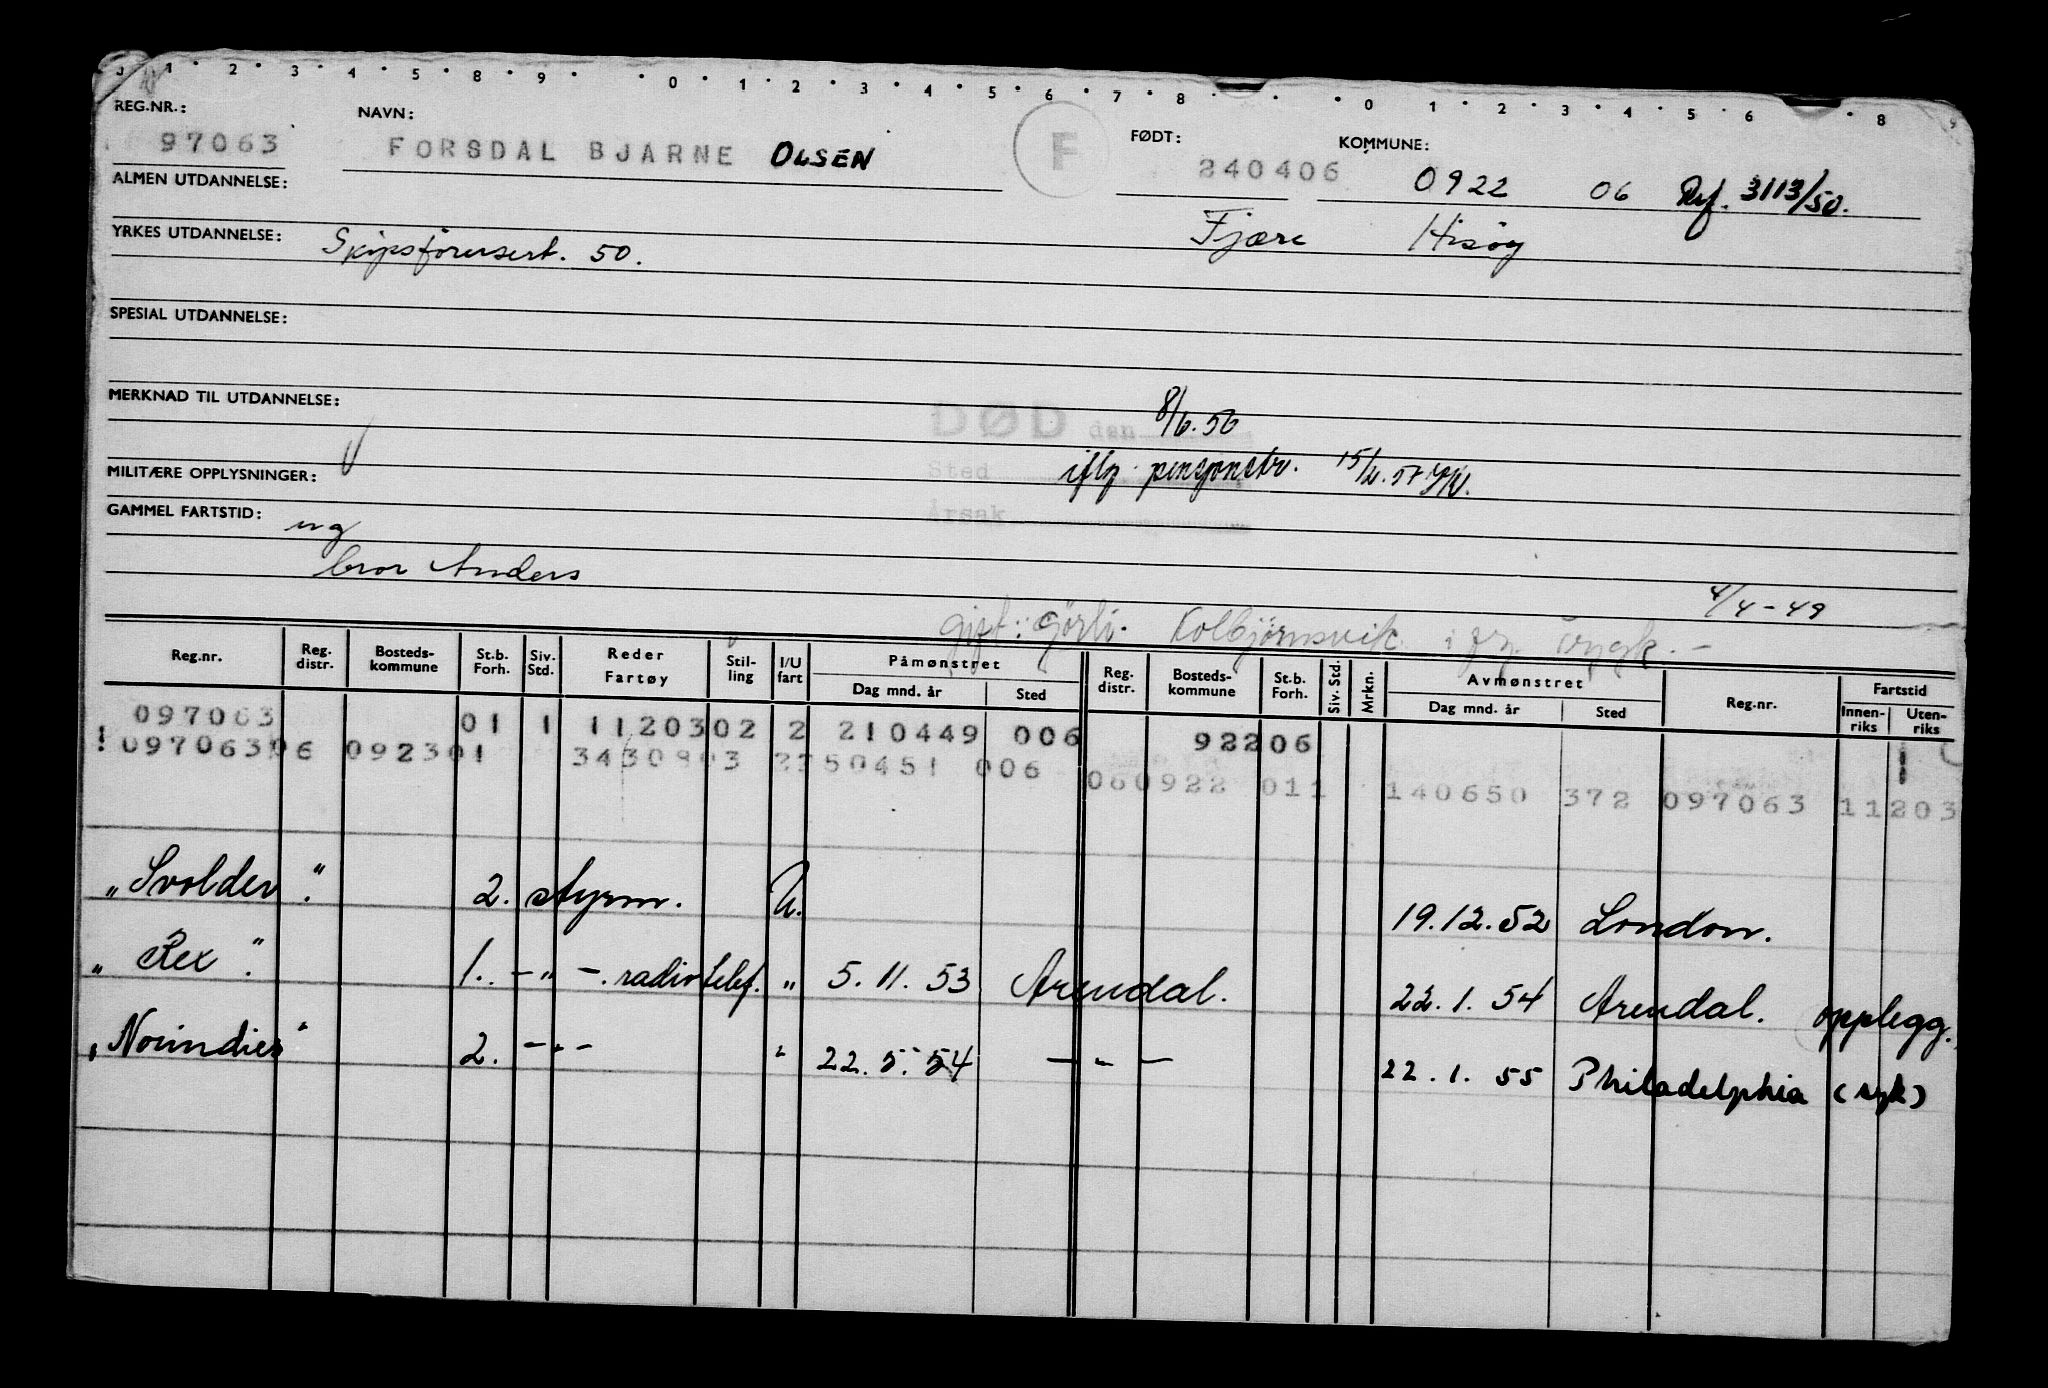 0 1 • 2 • 3 • 4 • 5 • 8 • 9 • • 0 • 1 • 2 • 3 • 4 • 5 • 6 • 7 • 8 • • 0 1 • 2 • 3 • 4 • 5 • 6 • 8 9
REG.NR.: NAVN: FØDT: KOMMUNE:
97063 FORSDAL BJARNE OLSEN F 240406 0922 06 Ref. 3113/50.
ALMEN UTDANNELSE:
Fjære Hisøy
YRKES UTDANNELSE: Skipsførersert. 50.
SPESIAL UTDANNELSE:
MERKNAD TIL UTDANNELSE:
DØD den 8/6.56
MILITÆRE OPPLYSNINGER: V
Sted iflg. pensjonstr. 15/2.57
GAMMEL FARTSTID: ug
Årsak
bror Anders
4/4-49
gift: Kolbjørnsvik
Reg.nr. Reg. distr. Bosteds- kommune St.b. Forh. Siv. Std. Reder Fartøy Stil- ling I/U fart Påmønstret Dag mnd. år Sted Reg. distr. Bosteds- kommune St.b. Forh. Siv. Std. Mrkn. Avmønstret Dag mnd. år Sted Reg.nr. Fartstid Innen- riks Uten- riks
097063 01 1 1120302 2 210449 006 92206
! 09706306 092301 3430803 2250451 006 060922 011 140650 372 097063 11203
„Svolder". 2. styrm. U. 19.12.52 London.
„Rex". 1. -„-. radiotelef. „ 5.11.53 Arendal. 22.1.54 Arendal. opplegg.
„Norindies" 2. -„- „ 22.5.54 -„- 22.1.55 Philadelphia (syk)